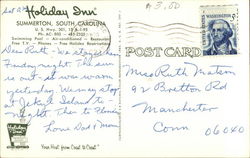 $3.00
Holiday Inn
SUMMERTON, SOUTH CAROLINA
U. S. Hwy. 301, 15 & I-95
Swimming Pool - Air-conditioned - Restaurant
Free T.V. - Phones - Free Holiday Reservations
POST CARD
Dear Ruth - We stopped here
Sunday night. The sun
is out - as was warm
yesterday. We may stop
at Jekyll Island to-
night. Then to Florida
Love Dad & Mom
Holiday Inn
"Your Host from Coast to Coast"
Miss Ruth Makson
92 Bretton Rd
Manchester
Conn 06040